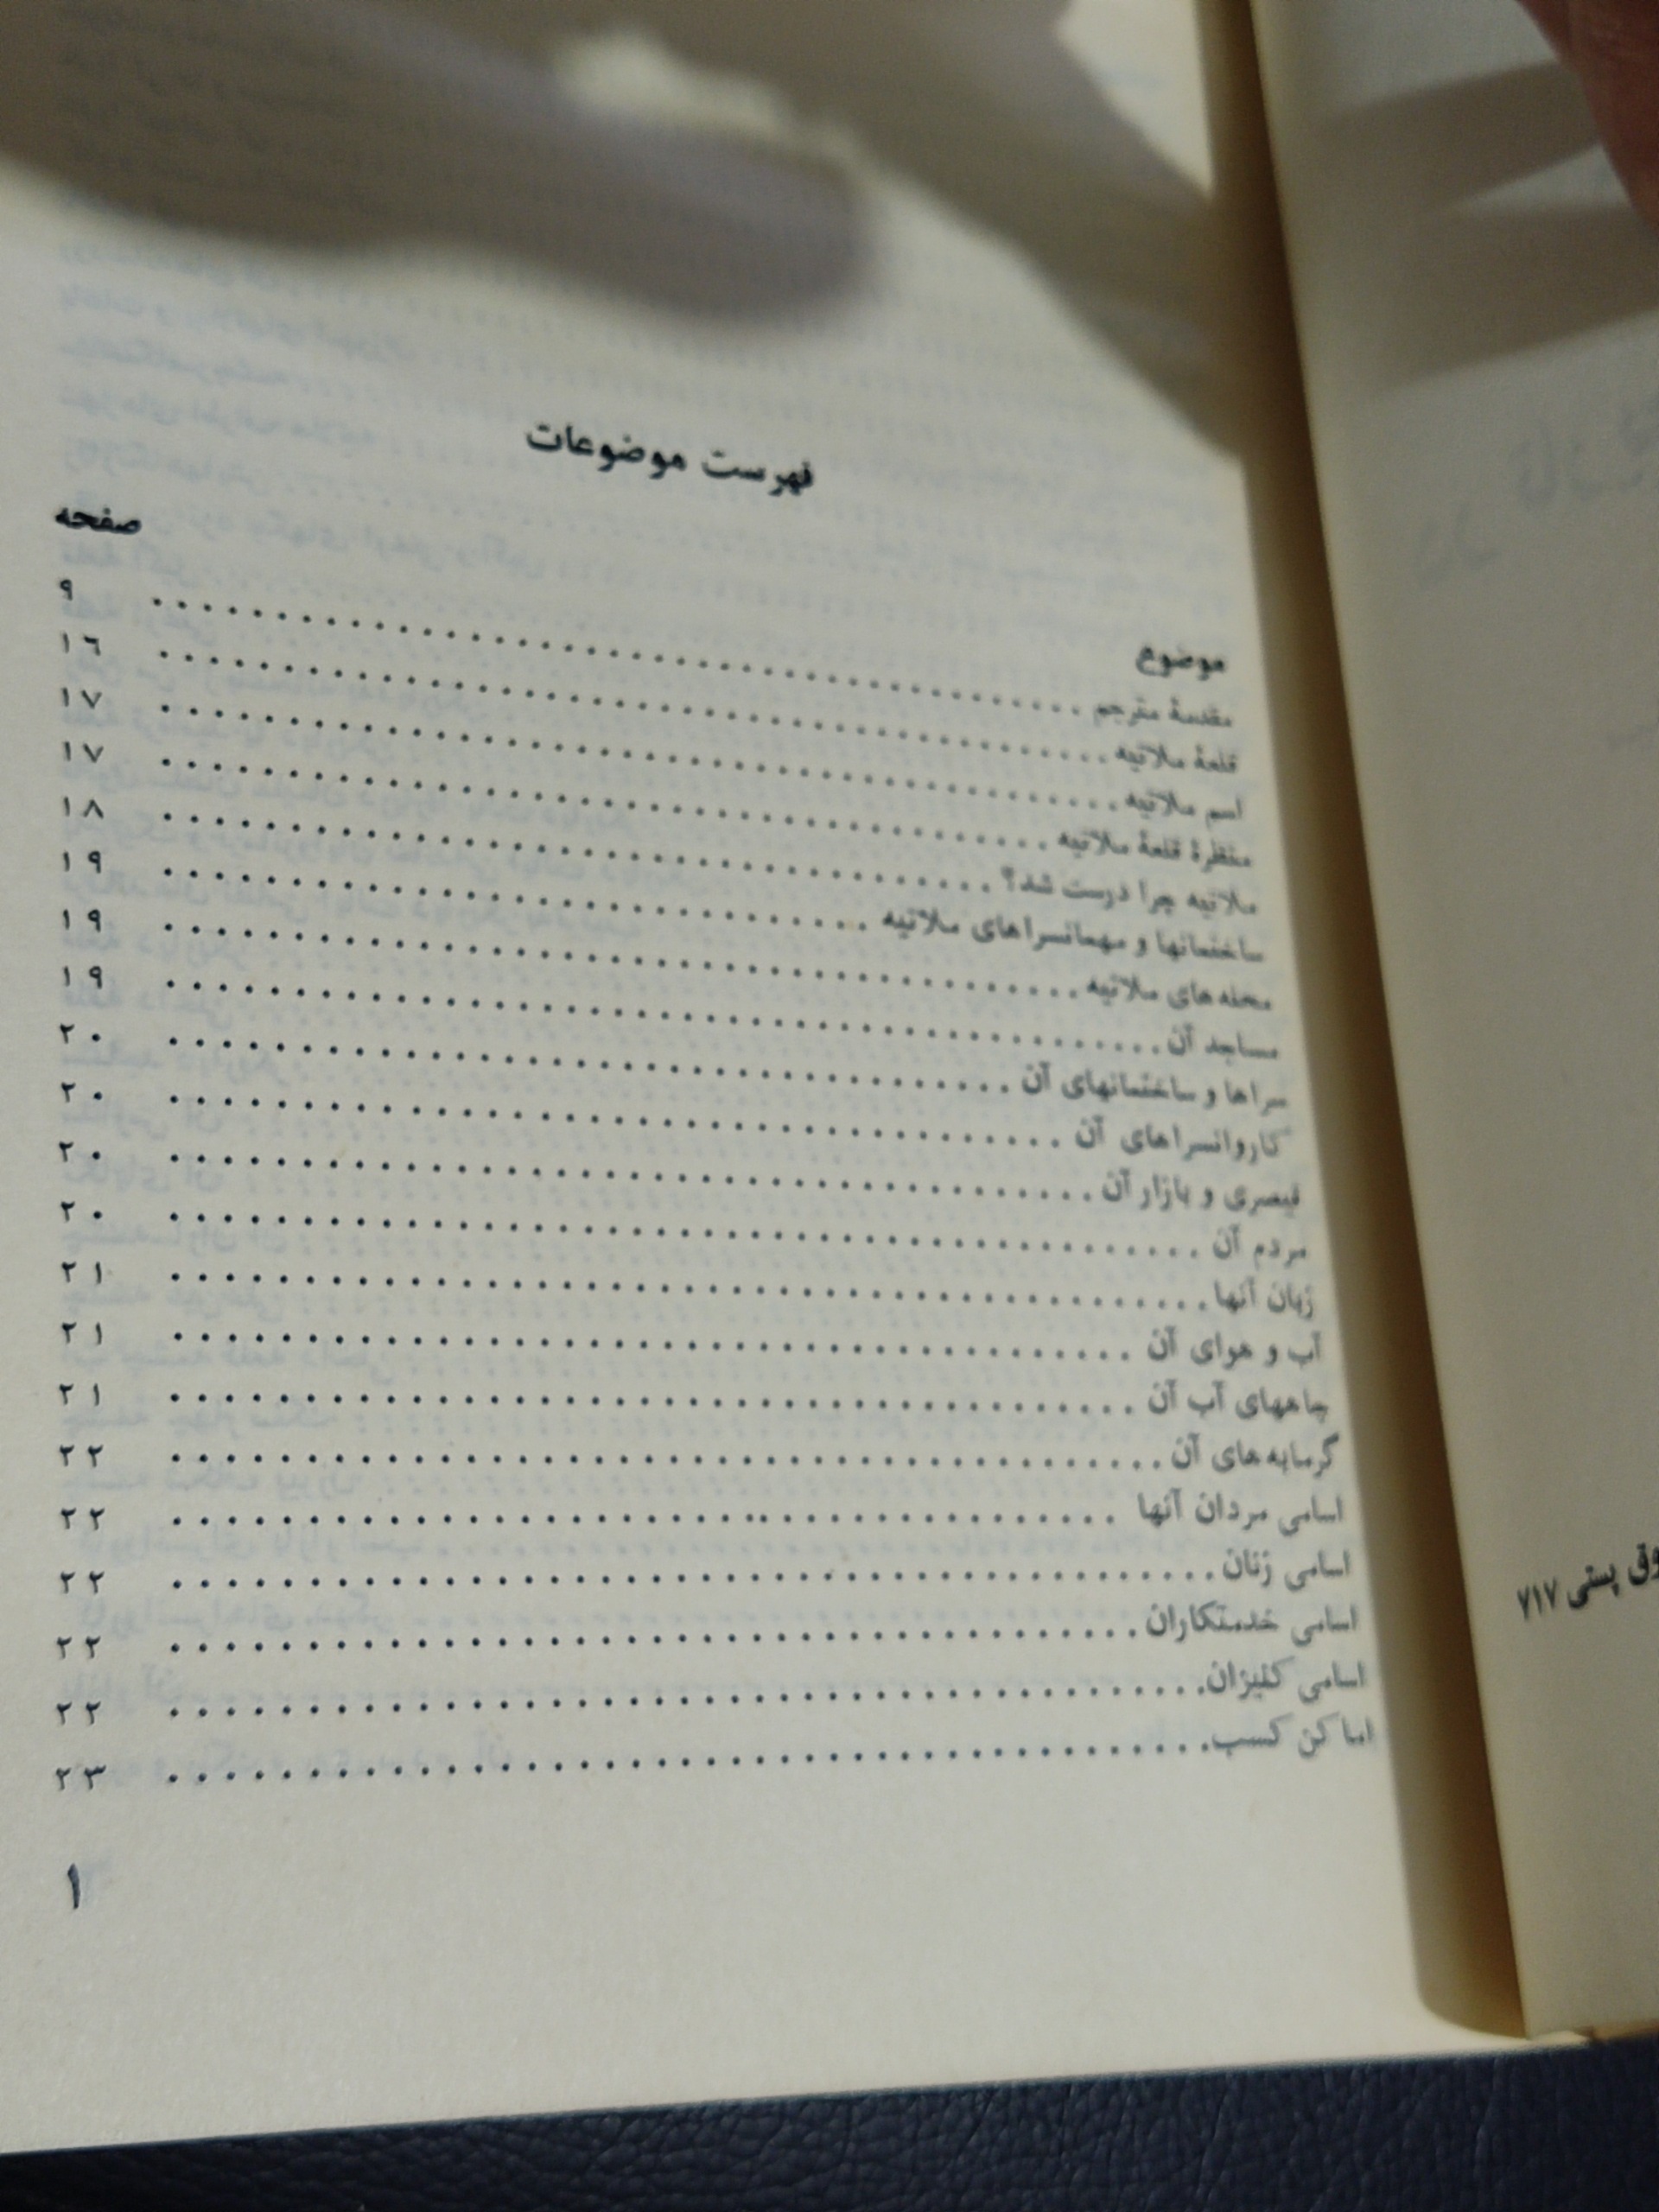 فهرست موضوعات
موضوع صفحه
مقدمهٔ مترجم ........................................ ۹
قلعهٔ ملاتیه ........................................ ۱٦
اسم ملاتیه ........................................ ۱۷
منظرهٔ قلعهٔ ملاتیه ........................................ ۱۷
ملاتیه چرا درست شد؟ ........................................ ۱۸
ساختمانها و مهمانسراهای ملاتیه ........................................ ۱۹
محله‌های ملاتیه ........................................ ۱۹
مساجد آن ........................................ ۱۹
سراها و ساختمانهای آن ........................................ ۲۰
کاروانسراهای آن ........................................ ۲۰
قیصری و بازار آن ........................................ ۲۰
مردم آن ........................................ ۲۰
زبان آنها ........................................ ۲۱
آب و هوای آن ........................................ ۲۱
چاههای آب آن ........................................ ۲۱
گرمابه‌های آن ........................................ ۲۲
اسامی مردان آنها ........................................ ۲۲
اسامی زنان ........................................ ۲۲
اسامی خدمتکاران ........................................ ۲۲
اسامی کنیزان ........................................ ۲۲
اماکن کسب ........................................ ۲۳
۱
پستی ۷۱۷